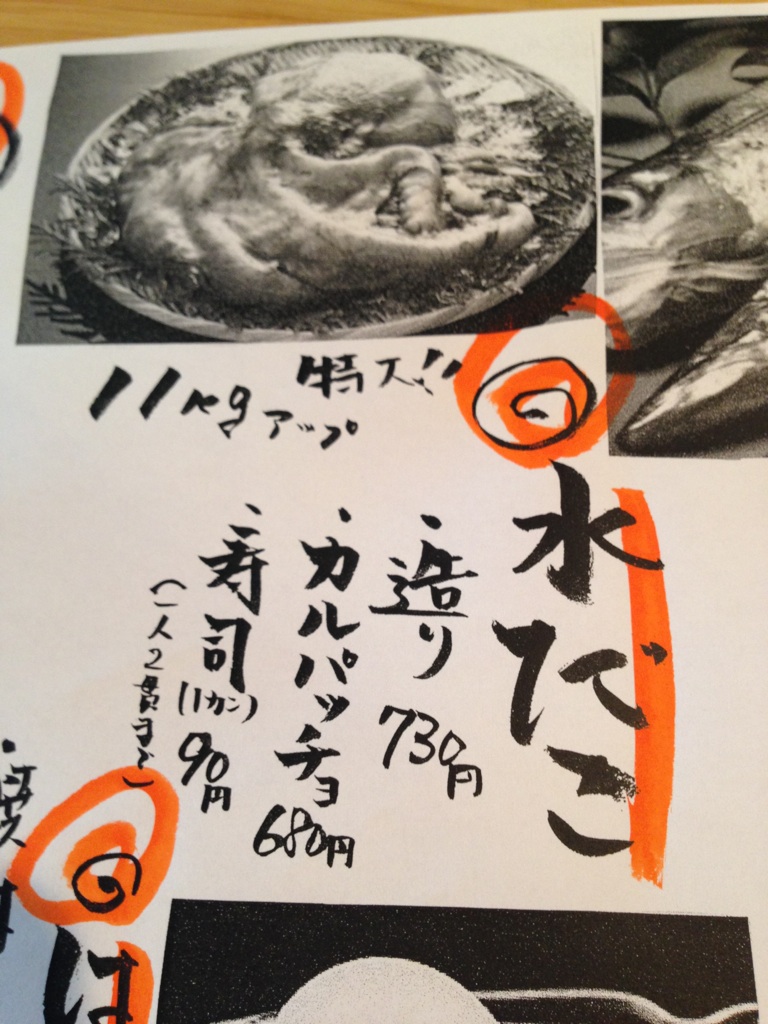 特大!!
11kgアップ
水だこ
・造り 730円
・カルパッチョ 680円
・寿司(1カン) 90円
(一人2貫まで)
は